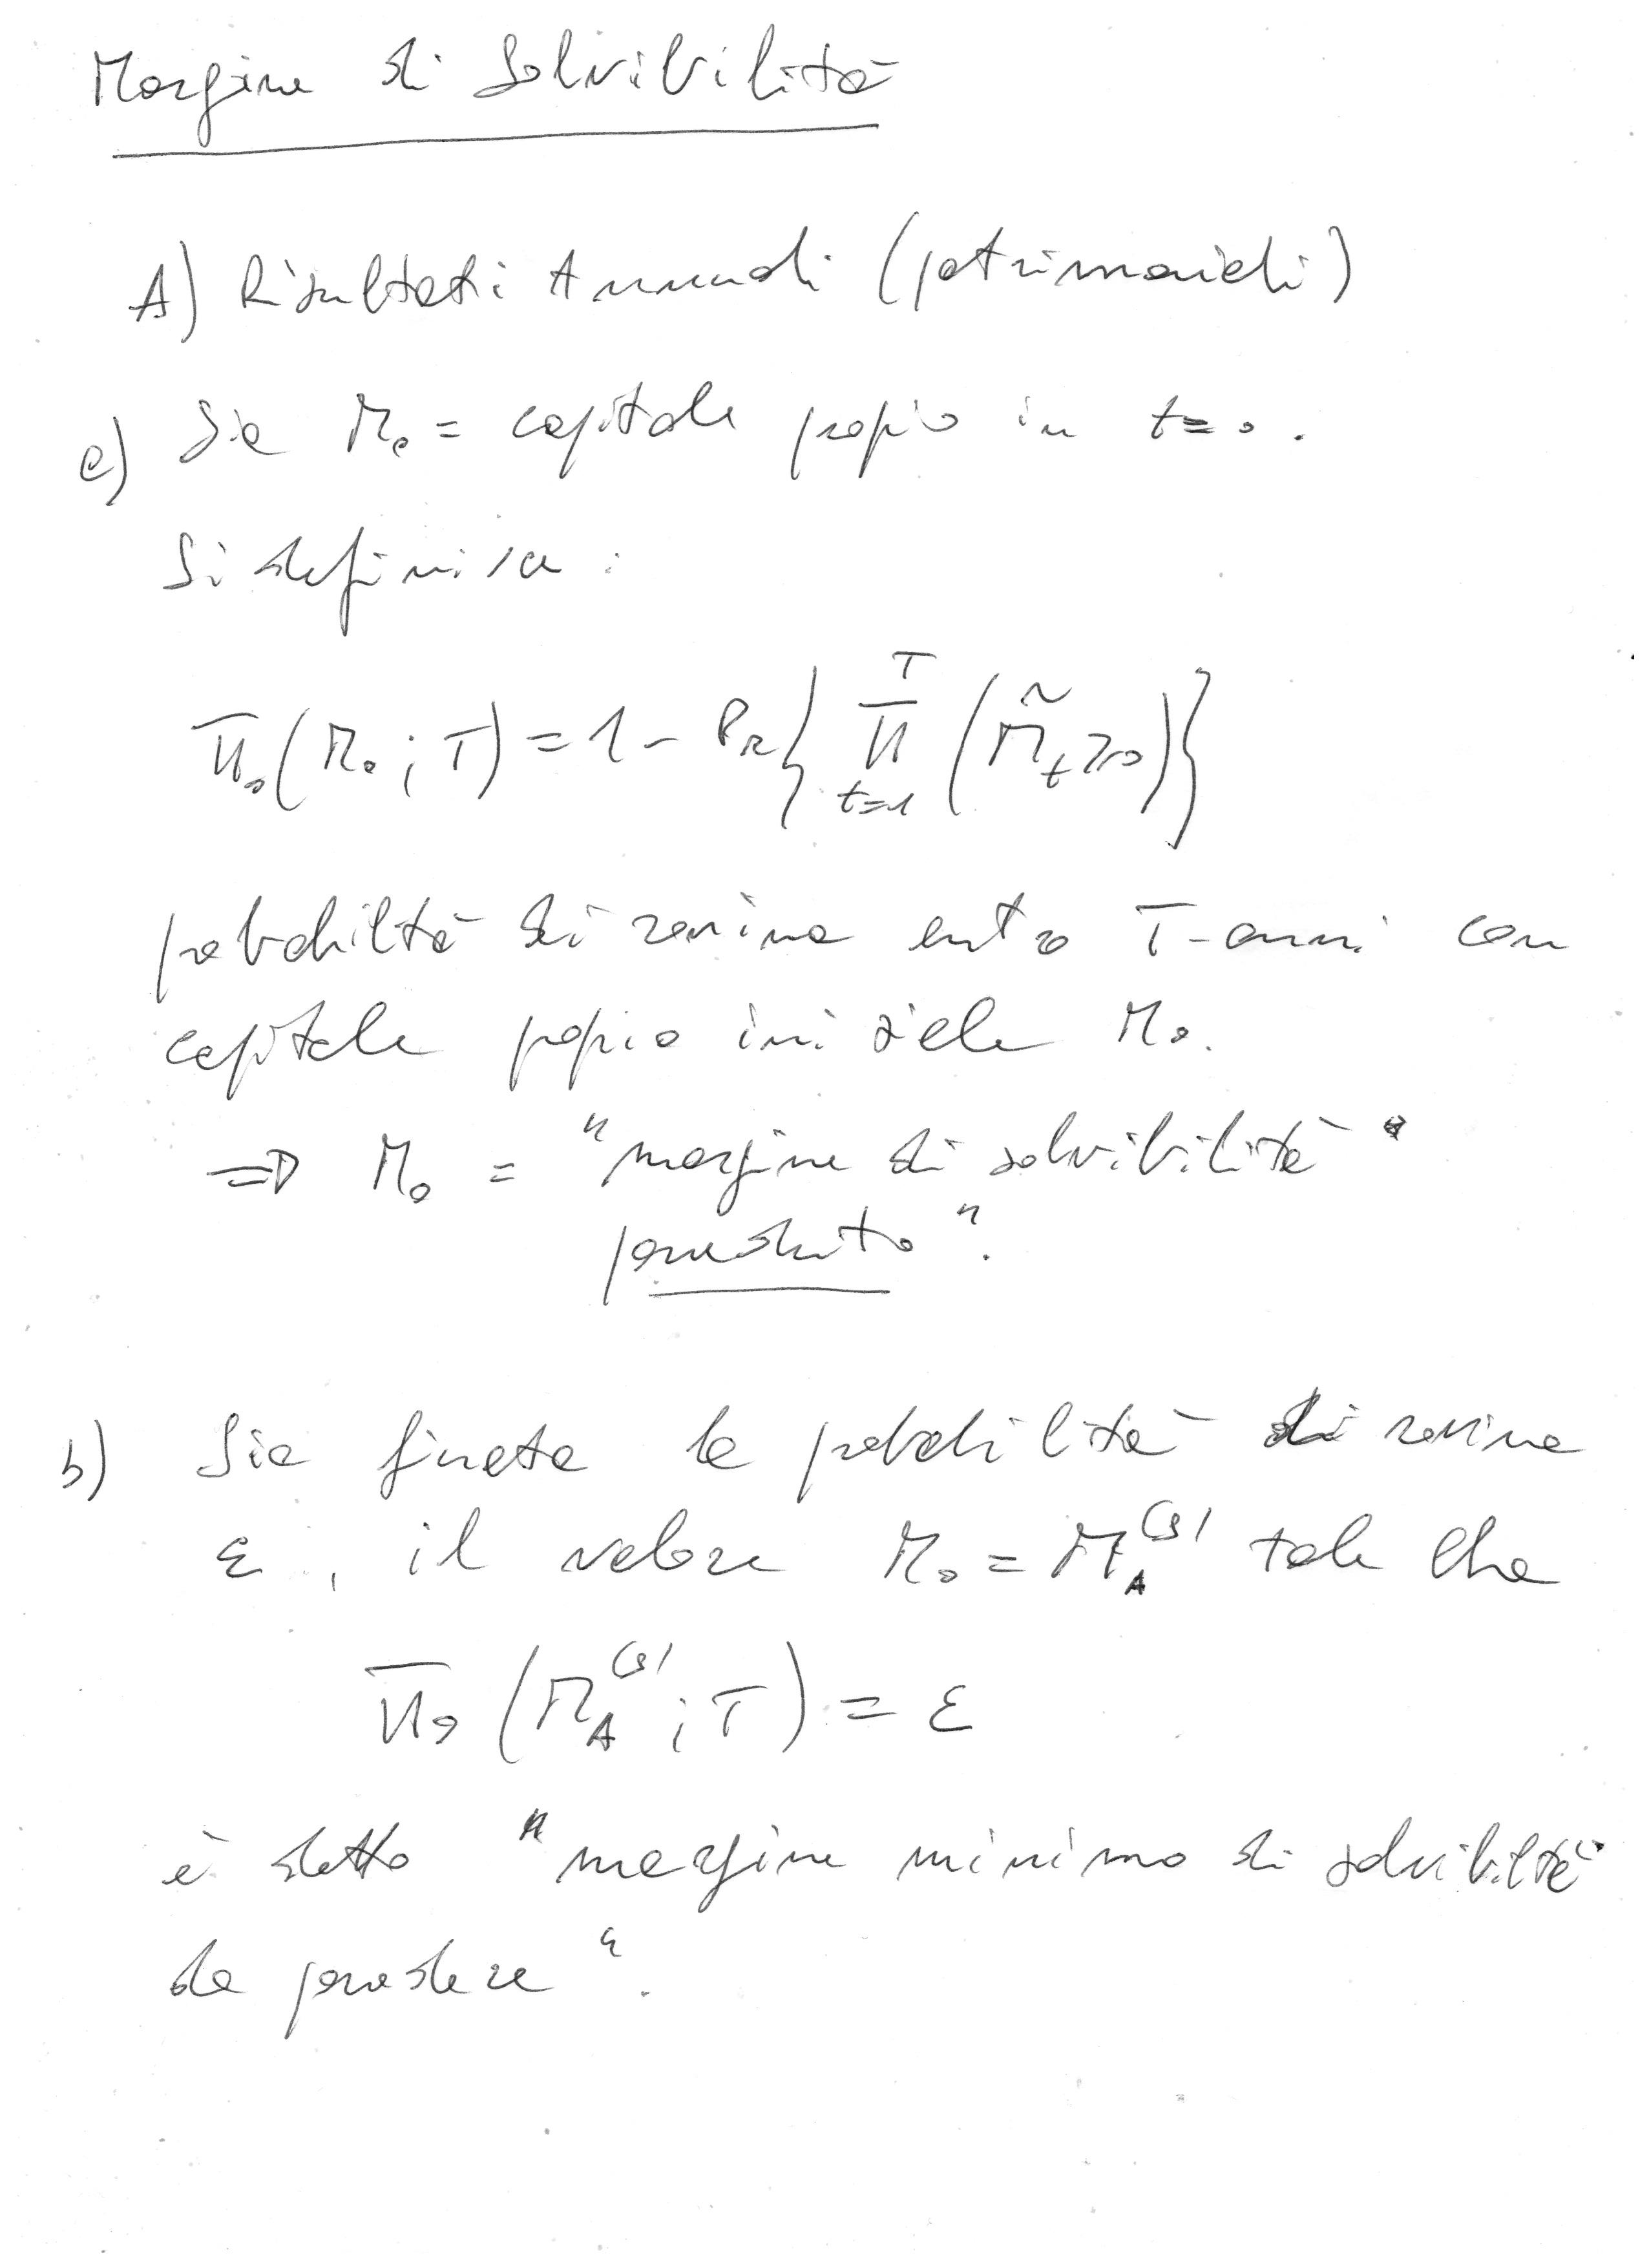 Margine di Solvibilità
A) Risultati Annuali (patrimoniali)
a) Sia M₀ = capitale proprio in t=0.
Si definisce :
Π₀(M₀; T) = 1 - Pr{ Π_{t=1}^{T} (M̃_t ≥ 0) }
probabilità di rovina entro T-anni con
capitale proprio iniziale M₀.
⇒ M₀ = "margine di solvibilità
posseduto".
b) Sia fissata la probabilità di rovina
ε, il valore M₀ = M_A^{(s)} tale che
Π₀(M_A^{(s)}; T) = ε
è detto "margine minimo di solvibilità
da possedere".